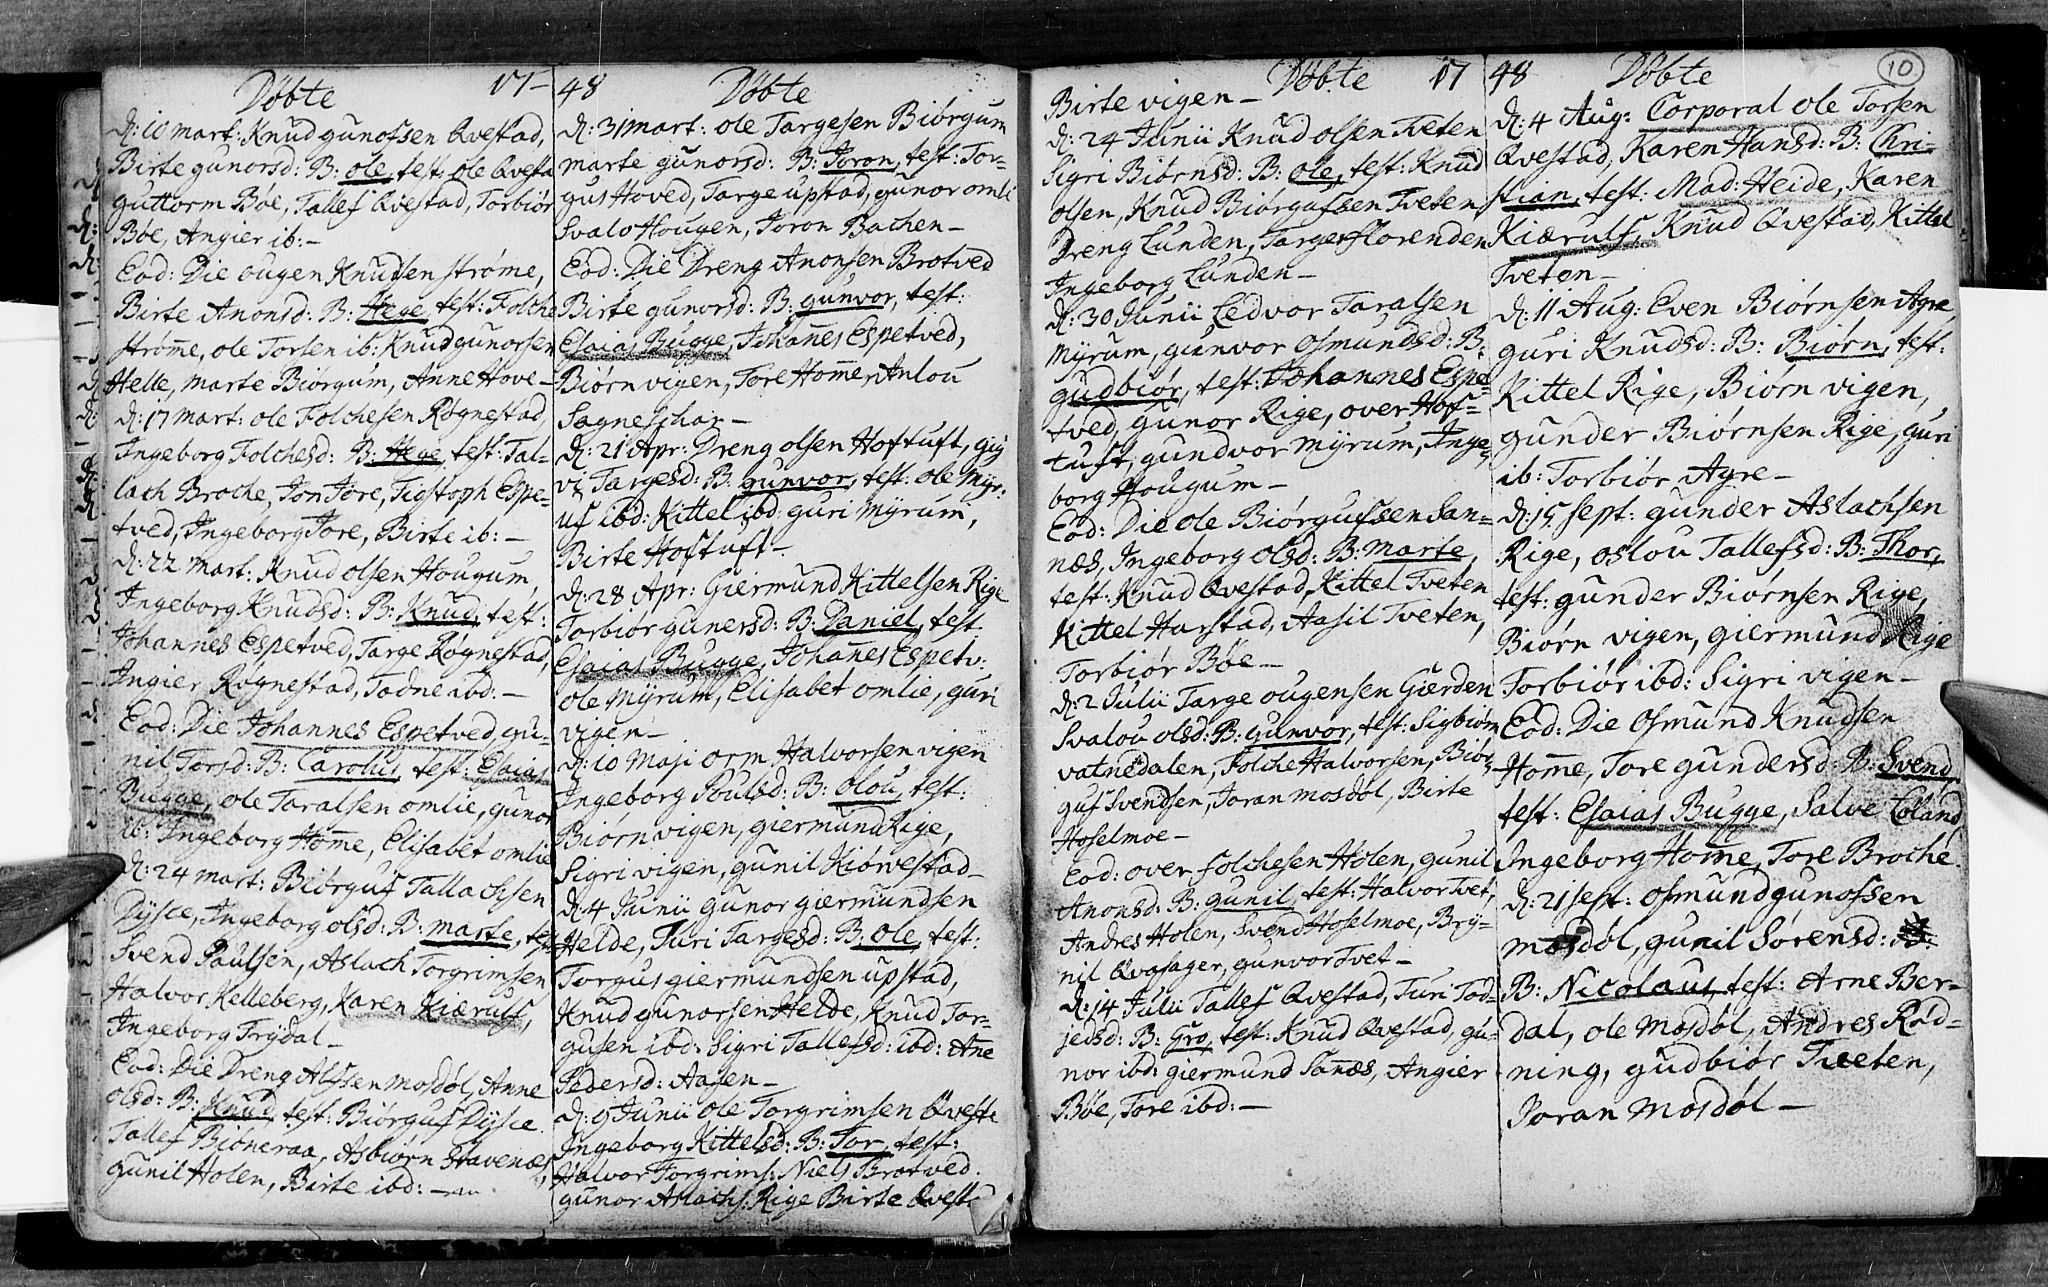 Døbte 17-
d: 10 mart: Knud gunofsen Qvestad,
Birte gunorsd: B: ole, test: ole Qvesta
guttorm Bøe, Tallef Qvestad, Torbiør
Bøe, Angier ib: -
Eod: Die ougen Knudsen strøme,
Birte Anonsd: B: Hege, test: Folche
strøme, ole Torsen ib: Knud gunorsen
Helle, marte Biørgum, Anne Hove-
d: 17 mart: ole Folchesen Røgnestad,
Ingeborg Folchesd: B: Hege, test: Tal-
lach Broche, Jon Jore, Tiostoph Espe-
tved, Ingeborg Jore, Birte ib: -
d: 22 mart: Knud olsen Hougum,
Ingeborg Knudsd: B: Knud, test:
Johannes Espetved, Targe Røgnestad,
Ingier Røgnestad, Tadne ibd: -
Eod: Die Johannes Espetved, gu-
nil Torsd: B: Carolus, test: Esaias
Bugge, ole Taralsen omlie, gunor
ib: Ingeborg Home, Elisabet omlie
d: 24 mart: Biørguf Tallachsen
Dysce, Ingeborg olsd: B: marte, test:
Svend Paulsen, Aslach Torgrimsen
Halvor Kelleberg, Karen Kiærulf,
Ingeborg Frydal -
Eod: Die Dreng Alfsen mosdøl, Anne
olsd: B: Knud, test: Biørguf Dysce
Tallef Bioneraa, Asbiørn Stavenæs,
gunil Holen, Birte ibd: -
48 Døbte
d: 31 mart: ole Targesen Biørgum
marte gunorsd: B: Joron, test: Tor-
gus Hoved, Targe upstad, gunor omli
Svalo Hougen, Joron Bachen -
Eod: Die Dreng Anonsen Brotved
Birte gunorsd: B: gunvor, test:
Esaias Bugge, Johanes Espetved,
Biørn vigen, Tore Home, Anlou
Sagneschar -
d: 21 Apr: Dreng olsen Hoftuft, gy
vi Targesd: B: gunvor, test: ole Myr:
uf ibd: Kittel ibd: guri Myrum,
Birte Hoftuft -
d: 28 Apr: Giermund Kittelsen Rige
Torbiør gunersd: B: Daniel, test
Esaias Bugge, Johanes Espetv:
ole Myrum, Elisabet omlie, guri
vigen -
d: 10 Maji orm Halvorsen vigen
Ingeborg Poulsd: B: olou, test:
Biørn vigen, giermund Rige,
Sigri vigen, gunil Kiørvestad -
d: 4 Junii gunor giermundsen
Helde, Turi Targesd: B: ole, test:
Torgus giermundsen upstad,
Knud gunorsen Helde, Knud Tor-
gusen ibd: Sigri Tallefsd: ibd: Ane
Pedersd: Aasen -
d: 9 Junii ole Torgrimsen Qveste
Ingeborg Kittelsd: B: Tor, test:
Halvor Torgrims: Niels Brotved
gunor Aslachs: Rige Birte Qvest:
Birte vigen - Døbte 17
d: 24 Junii Knud olsen Tveten
Sigri Biørnsd: B: ole, test: Knud
olsen, Knud Biørgufsen Tveten
Dreng Lunden, Targer Florenden
Ingeborg Lunden -
d: 30 Junii Ledvor Taralsen
Myrum, gunvor Osmundsd: B:
gudbiør, test: Johannes Espe-
tved, gunor Rige, over Hof-
tuft, gundvor Myrum, Inge-
borg Hougum -
Eod: Die ole Biørgufsen San-
næs, Ingeborg olsd: B: Marte,
test: Knud Qvestad, Kittel Tveten
Kittel Harstad, Aasil Tveten,
Torbiør Bøe -
d: 2 Julii Targe ougensen Gierden
Svalou olsd: B: gunvor, test: Sigbiørn
vatnedalen, Folche Halvorsen, Biør-
guf Svendsen, Joran mosdøl, Birte
Hoslemoe -
Eod: over folchesen Holen, gunil
Anonsd: B: gunil, test: Halvor Tvet,
Andres Holen, Svend Hoslemoe, Bry-
nil Qvasager, gunvor Tvet -
d: 14 Julii Tallef Qvestad, Turi Tod-
jedsd: B: Gro, test: Knud Qvestad, gu-
nor ibd: giermund Sanæs, Angier
Bøe, Tore ibd: -
48 Døbte 10
d: 4 Aug: Corporal ole Torsen
Qvestad, Karen Hansd: B: Chri-
stian, test: Mad: Heide, Karen
Kiærulf, Knud Qvestad, Kittel
Tveten -
d: 11 Aug: Even Biørnsen Agre
guri Knudsd: B: Biørn, test:
Kittel Rige, Biørn vigen,
gunder Biørnsen Rige, guri
ib: Torbiør Agre -
d: 15 Sept: gunder Aslachsen
Rige, oslou Tallefsd: B: Thor,
test: gunder Biørnsen Rige,
Biørn vigen, giermund Rige
Torbiør ibd: Sigri vigen -
Eod: Die Osmund Knudsen
Home, Tore gundersd: B: Svend,
test: Esaias Bugge, Salve Esland
Ingeborg Home, Tore Broche.
d: 21 sept: Osmund gunofsen
mosdøl, gunil Sørensd:
B: Nicolaus, test: Arne Ber-
dal, ole Mosdøl, Andres Rød-
ning, gudbiør Tveten,
Joran Mosdøl -